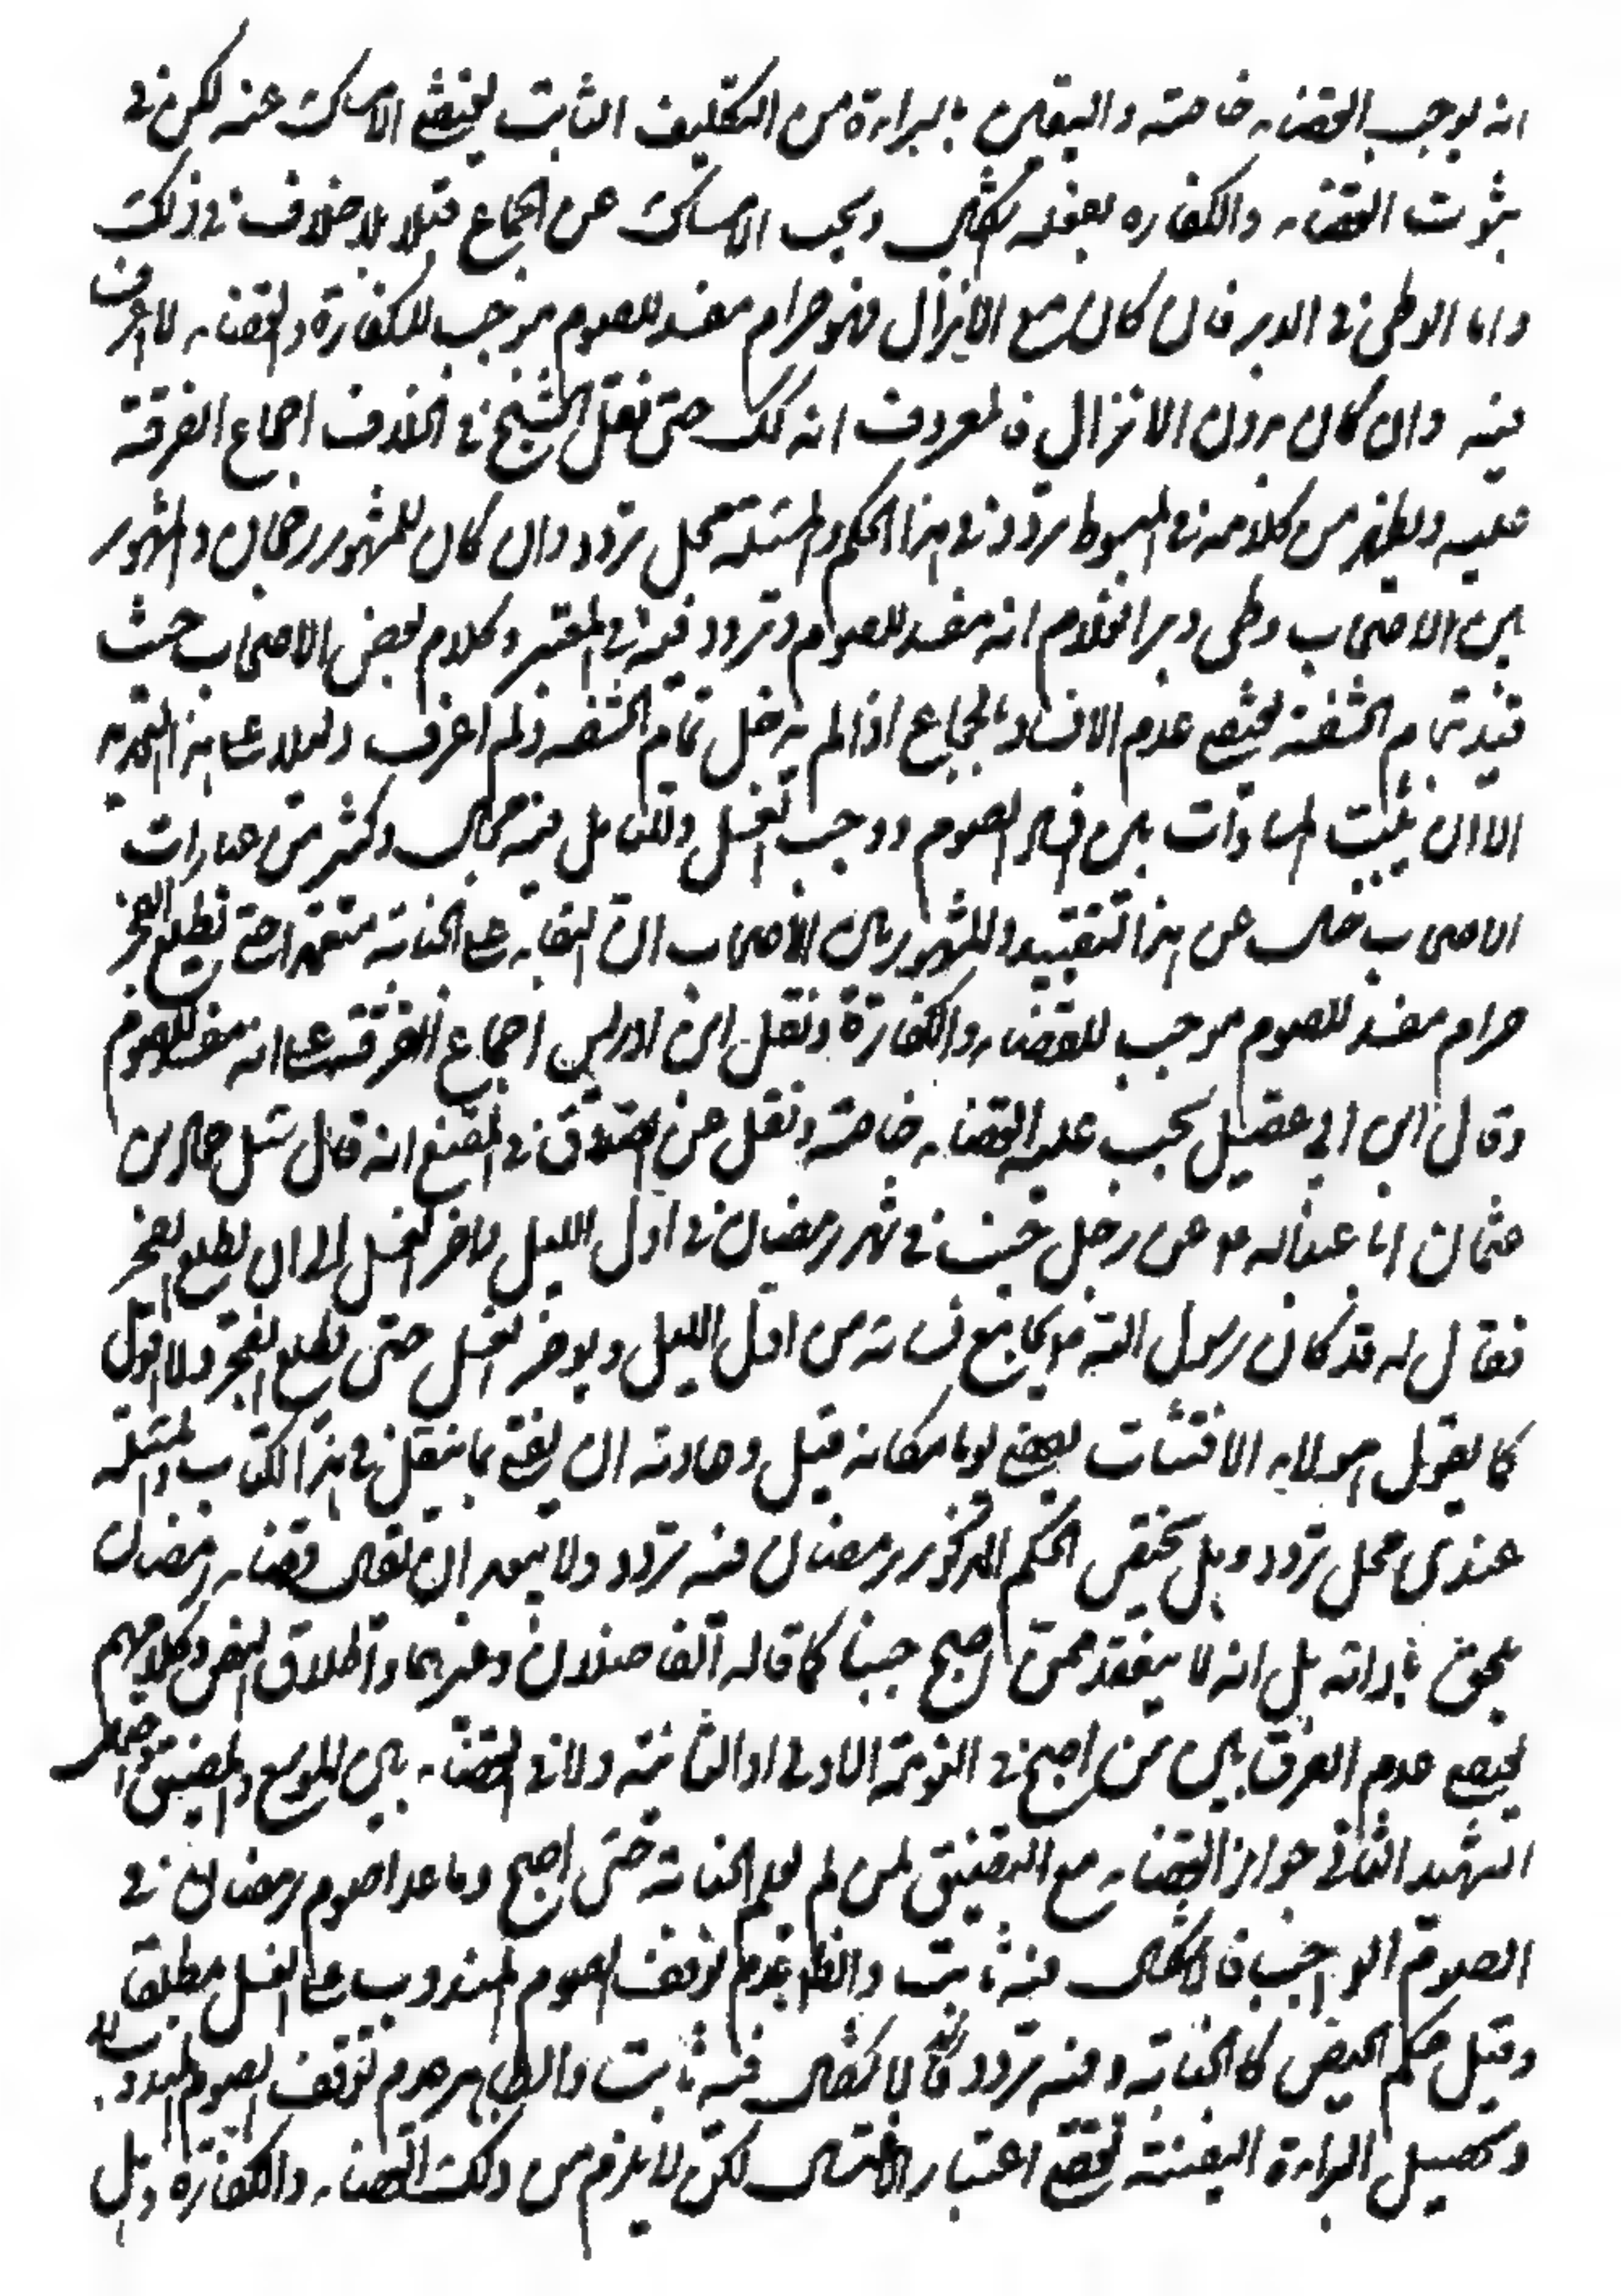 انه يوجب القضاء خاصة واليقين بالبراءة من التكليف الثابت يقتضي الامساك عنه لكن في
ثبوت القضاء والكفارة بفعله اشكال ويجب الامساك عن الجماع قبلا بلا خلاف في ذلك
واما الوطي في الدبر فان كان مع الانزال فهو حرام مفسد للصوم موجب للكفارة والقضاء لا اعرف خلافا
فيه وان كان بدون الانزال فالمعروف انه كك حتى نقل الشيخ في الخلاف اجماع الفرقة
عليه ويظهر من كلامه في المبسوط تردد في هذا الحكم والمسئلة محل تردد وان كان للمشهور رجحان والمشهور
بين الاصحاب وطى دبر الغلام انه مفسد للصوم وتردد فيه في المعتبر وكلام بعض الاصحاب حيث
قيد بتمام الحشفة يقتضي عدم الافساد بالجماع اذا لم يدخل تمام الحشفة ولم اعرف دليلا على هذا التحديد
الا ان يثبت المساوات بين فساد الصوم ووجوب الغسل وللتامل فيه مجال وكثير من عبارات
الاصحاب خال عن هذا التقييد والمشهور بين الاصحاب ان البقاء على الجنابة متعمدا حتى يطلع الفجر
حرام مفسد للصوم موجب للقضاء والكفارة ونقل ابن ادريس اجماع الفرقة على انه مفسد للصوم
وقال ابن ابي عقيل يجب عليه القضاء خاصة ونقل عن الصدوق في المقنع انه قال سئل حماد بن
عثمان ابا عبدالله ع عن رجل اجنب في شهر رمضان في اول الليل فاخر الغسل الى ان يطلع الفجر
فقال له قد كان رسول الله ص يجامع نسائه من اول الليل ويوخر الغسل حتى يطلع الفجر ولا اقول
كما يقول هولاء الاقشاب يقضي يوما مكانه قيل وعادته ان يفتي بما ينقل في هذا الكتاب والمسئلة
عندي محل تردد وهل يختص الحكم المذكور برمضان فيه تردد ولا يبعد ان يقال قضاء رمضان
يلحق باداته بل انه لا ينعقد ممن اصبح جنبا كما قاله الفاضلان وغيرهما واطلاق النص وكلامهم
يقتضي عدم الفرق بين من اصبح في النومة الاولى او الثانية ولا في القضاء بين الموسع والمضيق واحتمل
الشهيد الثاني جواز القضاء مع التضيق لمن لم يعلم الجنابة حتى اصبح وما عدا صوم رمضان في
الصوم الواجب فالاشكال فيه ثابت والظ عدم توقف الصوم المندوب على الغسل مطلقا
وقيل حكم الحيض كالجنابة وفيه تردد فالاشكال فيه ثابت والظاهر عدم توقف الصوم المندوب
وتحصيل البراءة اليقينية يقتضي اعتبار الاغتسال لكن لا يلزم من ذلك القضاء والكفارة وهل